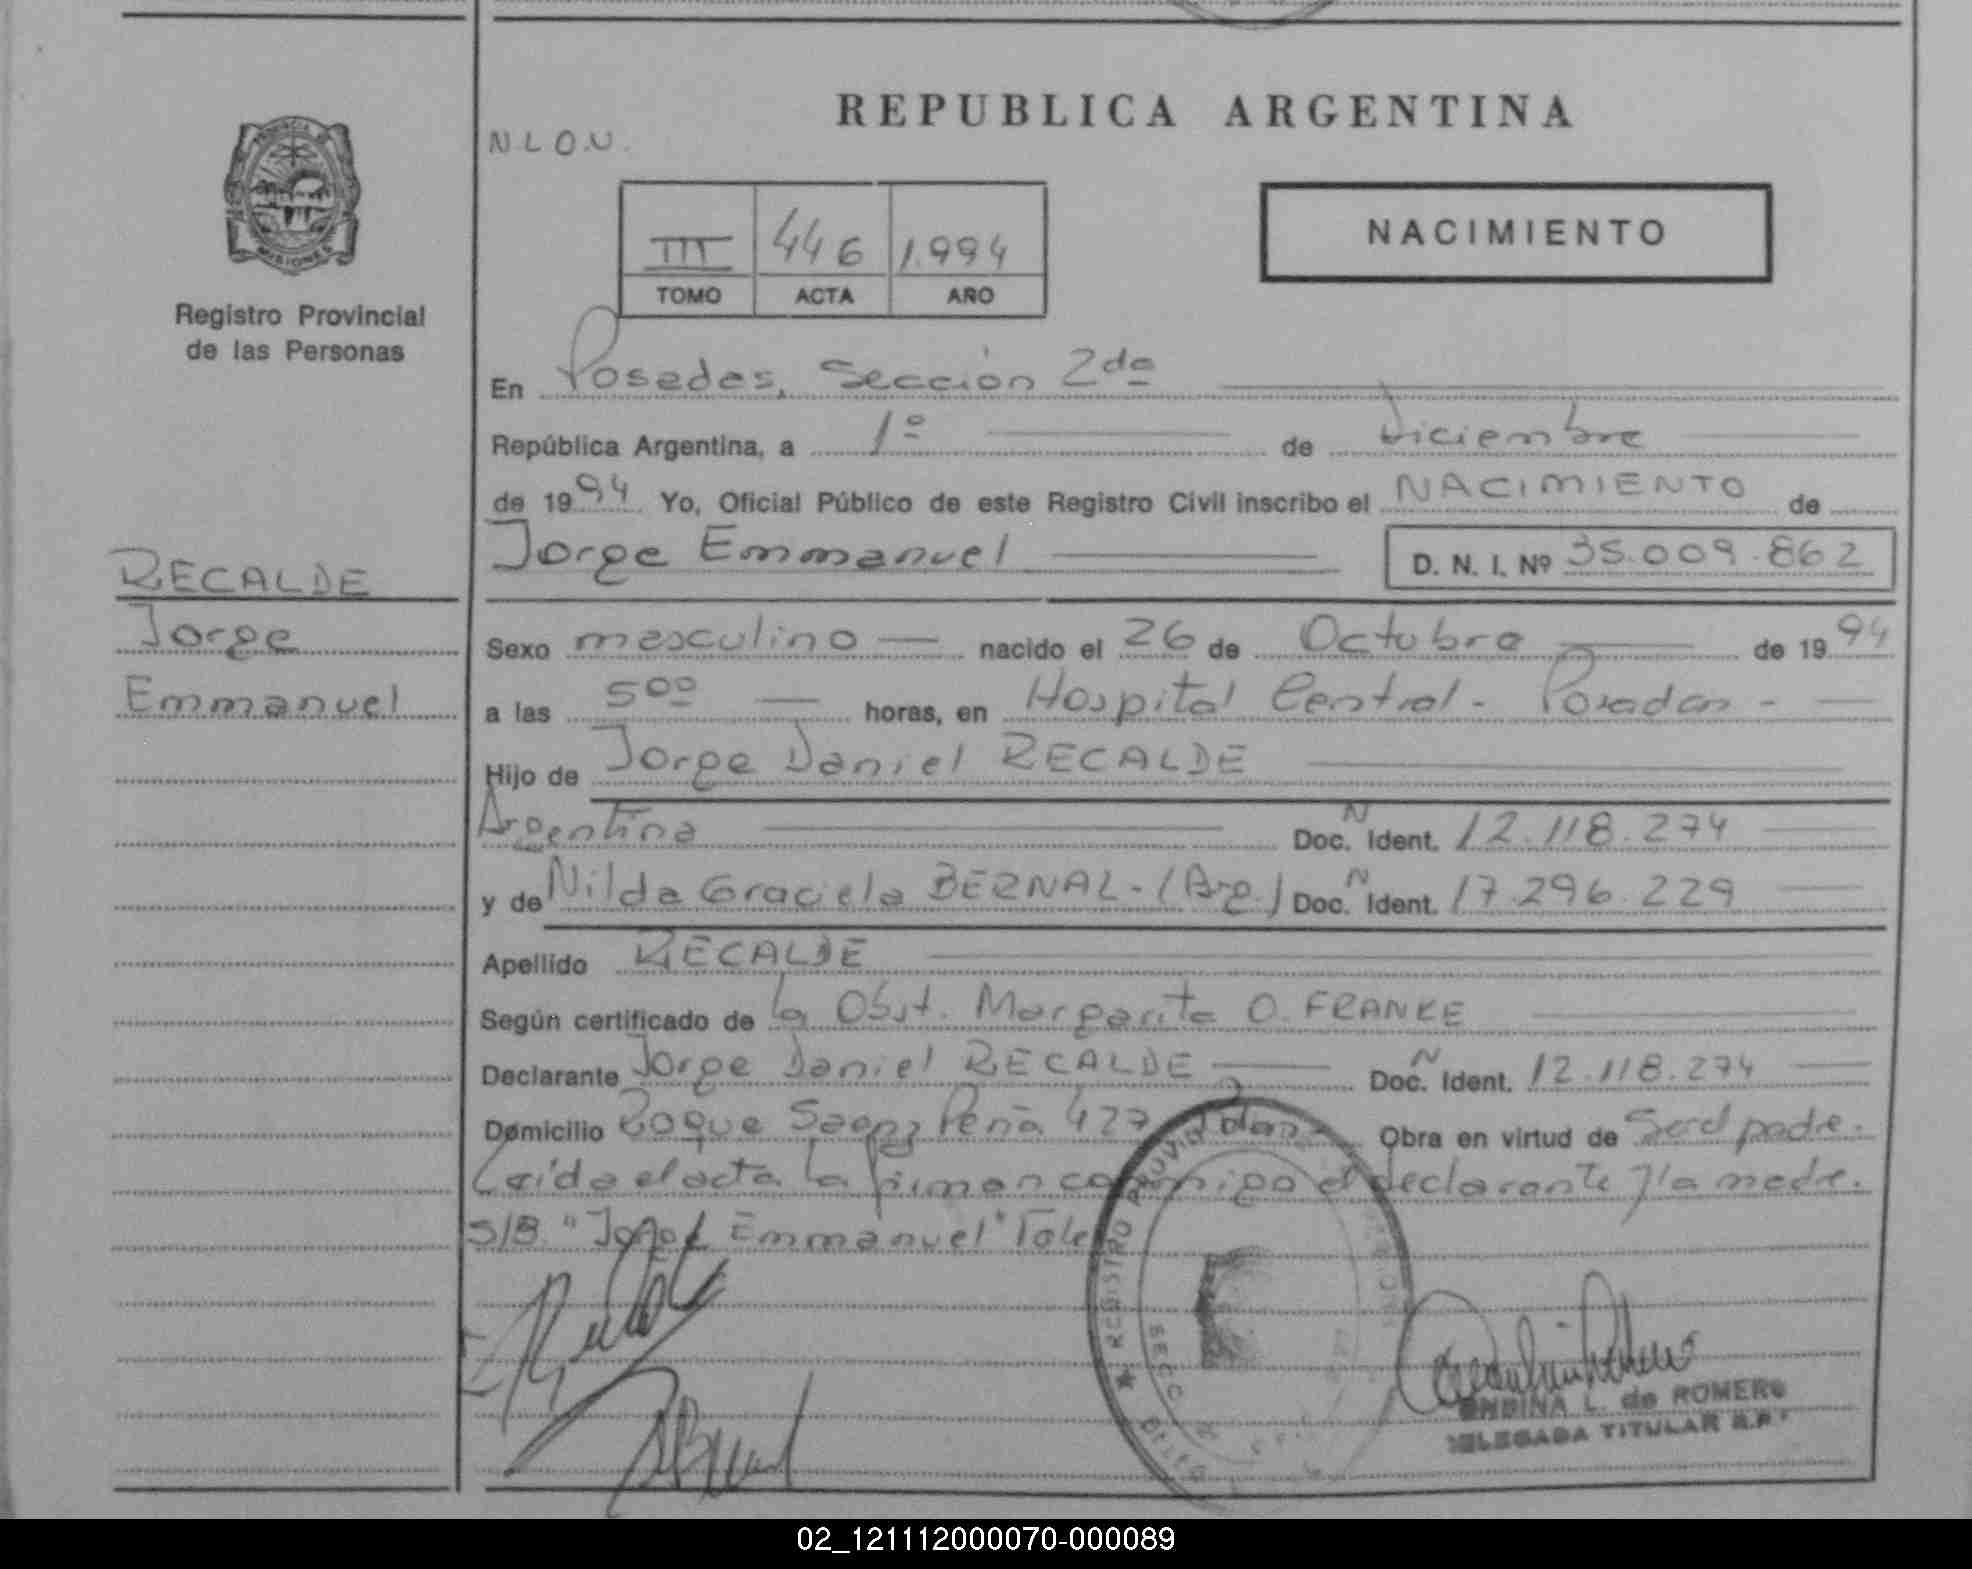 REPUBLICA ARGENTINA
N.L.O.U.
NACIMIENTO
III 446 1.994
TOMO ACTA AÑO
MISIONES
Registro Provincial
de las Personas
En Posadas, Sección 2da
República Argentina, a 1º de Diciembre
de 1994 Yo, Oficial Público de este Registro Civil inscribo el NACIMIENTO de
Jorge Emmanuel D. N. I. Nº 35.009.862
RECALDE
Jorge
Emmanuel
Sexo masculino nacido el 26 de Octubre de 1994
a las 5ºº horas, en Hospital Central - Posadas -
Hijo de Jorge Daniel RECALDE
Argentina Doc. N Ident. 12.118.274
y de Nilda Graciela BERNAL - (Arg.) Doc. N Ident. 17.296.229
Apellido RECALDE
Según certificado de la Obst. Margarita O. FRANKE
Declarante Jorge Daniel RECALDE Doc. N Ident. 12.118.274
Domicilio Roque Saenz Peña 427 Obra en virtud de Ser el padre.
Leída el acta la firman conmigo el declarante y la madre.
S/B "Jorge Emmanuel" Vale
REGISTRO PROVI
SECC
L. de ROMERO
DELEGADA TITULAR R.P.
02_121112000070-000089